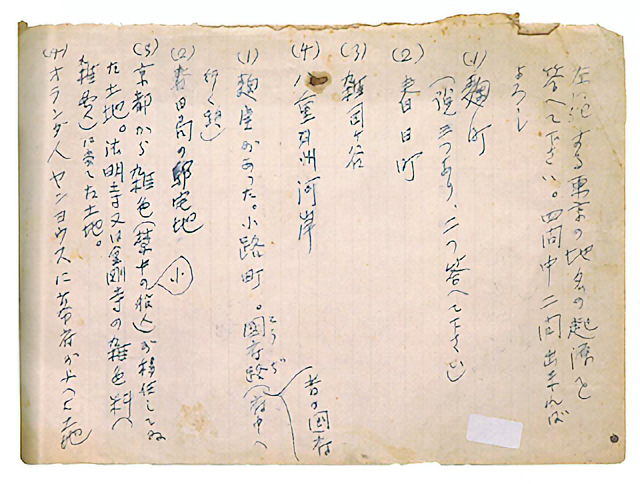 左に記する東京の地名の起源を
答へて下さい。四問中二問出来れば
よろし
(1) 麹町
(説三つあり、二つ答へて下さい)
(2) 春日町
(3) 雑司ヶ谷
(4) 八重洲河岸
(1) 麹室があった。小路町。国府路(府中へ
こうぢ
昔の国府
行く路)
(2) 春日局の邸宅地
(3) 京都から雑色(禁中の役人)が移住してゐ
小
た土地。法明寺又は金剛寺の雑色料へ
雑司)に当した土地。
(4) オランダ人ヤンヨウスに幕府が与へた土地